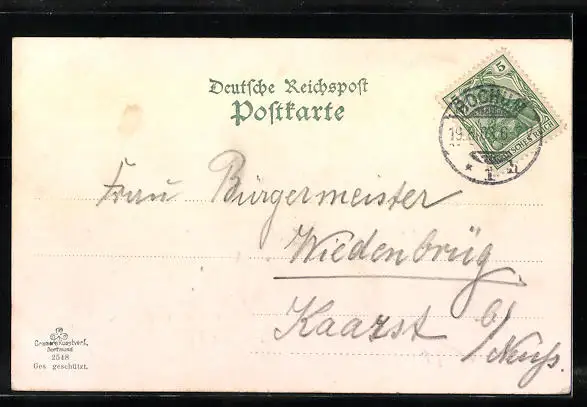 Deutsche Reichspost
Postkarte
5
BOCHUM
19.
* 1
Frau Bürgermeister
Wiedenbrüg
Kaarst b/
Neuss.
Cramers Kunstverl.
Dortmund
2548
Ges geschützt.